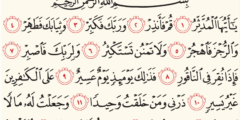 بسم الله الرحمن الرحيم
يَٰٓأَيُّهَا ٱلْمُدَّثِّرُ ١ قُمْ فَأَنذِرْ ٢ وَرَبَّكَ فَكَبِّرْ ٣ وَثِيَابَكَ فَطَهِّرْ ٤
وَٱلرُّجْزَ فَٱهْجُرْ ٥ وَلَا تَمْنُن تَسْتَكْثِرُ ٦ وَلِرَبِّكَ فَٱصْبِرْ ٧
فَإِذَا نُقِرَ فِى ٱلنَّاقُورِ ٨ فَذَٰلِكَ يَوْمَئِذٍ يَوْمٌ عَسِيرٌ ٩ عَلَى ٱلْكَٰفِرِينَ
غَيْرُ يَسِيرٍ ١٠ ذَرْنِى وَمَنْ خَلَقْتُ وَحِيدًا ١١ وَجَعَلْتُ لَهُۥ مَالًا